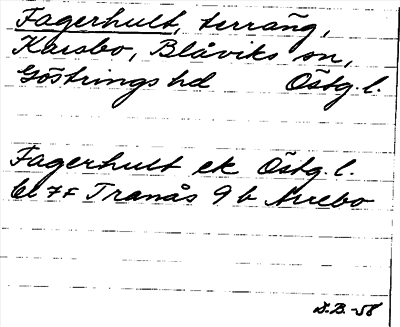 Fagerhult, terräng,
Karsbo, Blåviks sn,
Göstrings hd Östg. l.
Fagerhult ek Östg. l.
bl 7F Tranås 9 b Arebo
S.B.-58